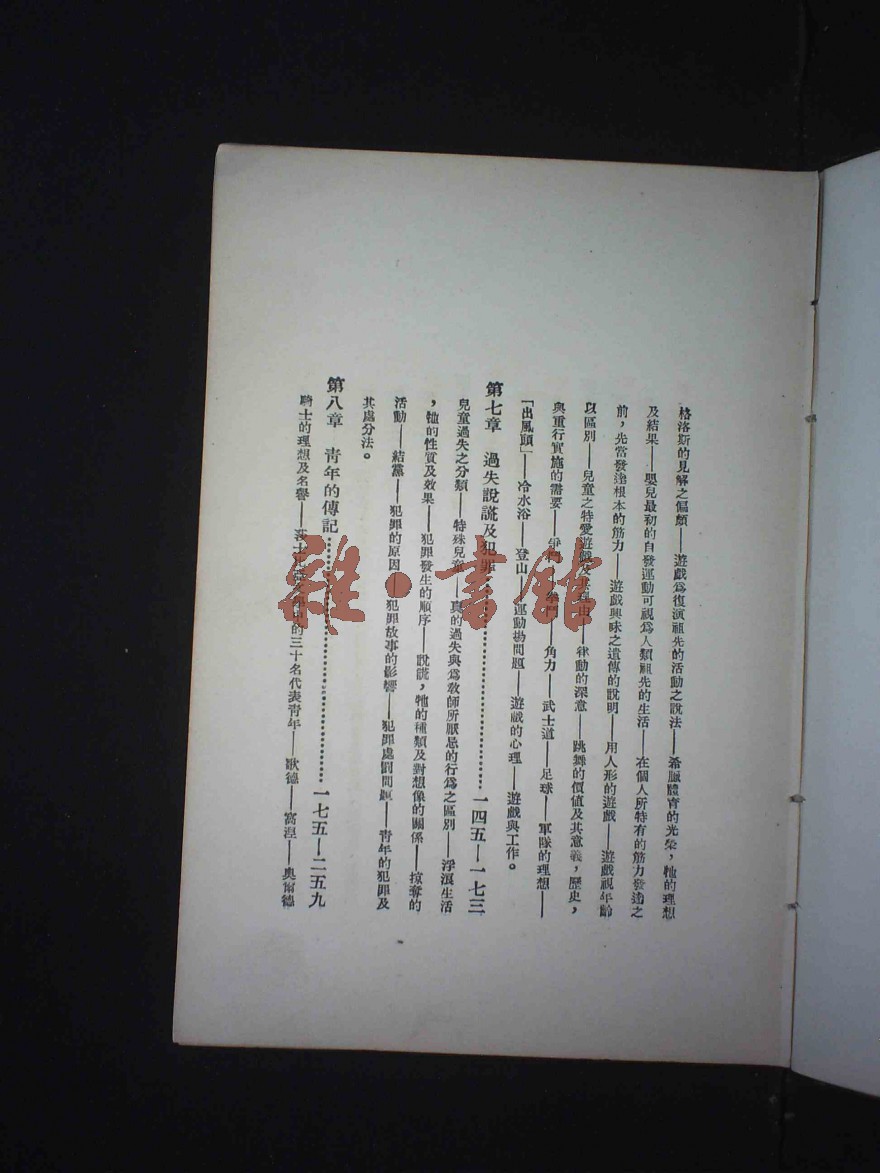 格洛斯的見解之偏頗——遊戲爲復演祖先的活動之說法——希臘體育的光榮，牠的理想
及結果——嬰兒最初的自發運動可視爲人類祖先的生活——在個人所特有的筋力發達之
前，先當發達根本的筋力——遊戲興味之遺傳的說明——用人形的遊戲——遊戲視年齡
以區別——兒童之特愛遊戲及其理由——律動的深意——跳舞的價值及其意義，歷史，
與重行實施的需要——拳鬥——角力——武士道——足球——軍隊的理想——
「出風頭」——冷水浴——登山——運動場問題——遊戲的心理——遊戲與工作。
第七章 過失說謊及犯罪…………一四五—一七三
兒童過失之分類——特殊兒童——真的過失與爲教師所厭忌的行爲之區別——浮浪生活
，牠的性質及效果——犯罪發生的順序——說謊，牠的種類及對想像的關係——掠奪的
活動——結黨——犯罪的原因——犯罪故事的影響——犯罪處罰問題——青年的犯罪及
其處分法。
第八章 青年的傳記…………一七五—二五九
騎士的理想及名譽——莎士比亞文學中的三十名代表青年——歌德——窩涅——奧爾德
雜·書館